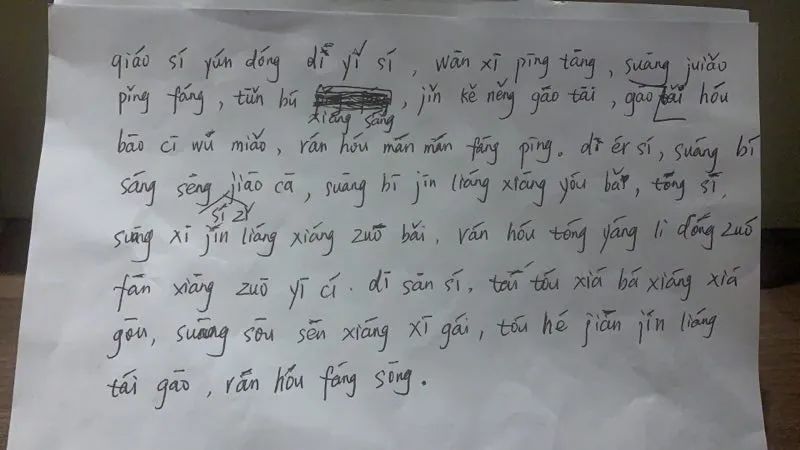 qiáo sí yún dóng dī yǐ sí , wān xī pīng tāng , suāng juiǎo
pǐng fáng , tūn bú , jǐn kě něng gāo tāi , gāo tǎi hóu
xiāng sáng
bāo cī wǔ miǎo , rán hóu mán mán fáng pīng 。 dī ér sí , suáng bí
sáng sēng jiāo cā , suāng bī jīn liáng xiáng yóu bǎi , tóng sí ,
sí zǐ
suāng xī jǐn liáng xiáng zuǒ bǎi , rán hóu tóng yáng lì dóng zuó
fǎn xiāng zuō yī cí . dī sān sí , tái tóu xiá bá xiáng xiá
gōu, suāng sōu sēn xiáng xī gái , tóu hé jiān jín liáng
tái gāo , rán hóu fáng sōng .